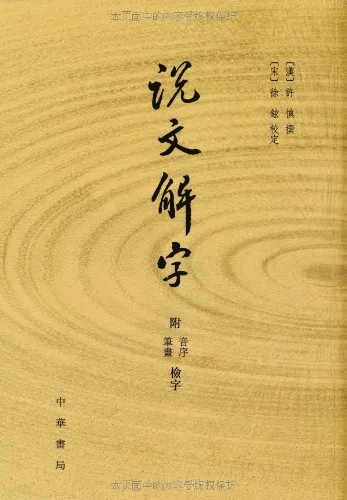 本页面中的内容受版权保护
［漢］許慎撰
［宋］徐鉉校定
说文解字
附音序筆畫檢字
中華書局
本页面中的内容受版权保护